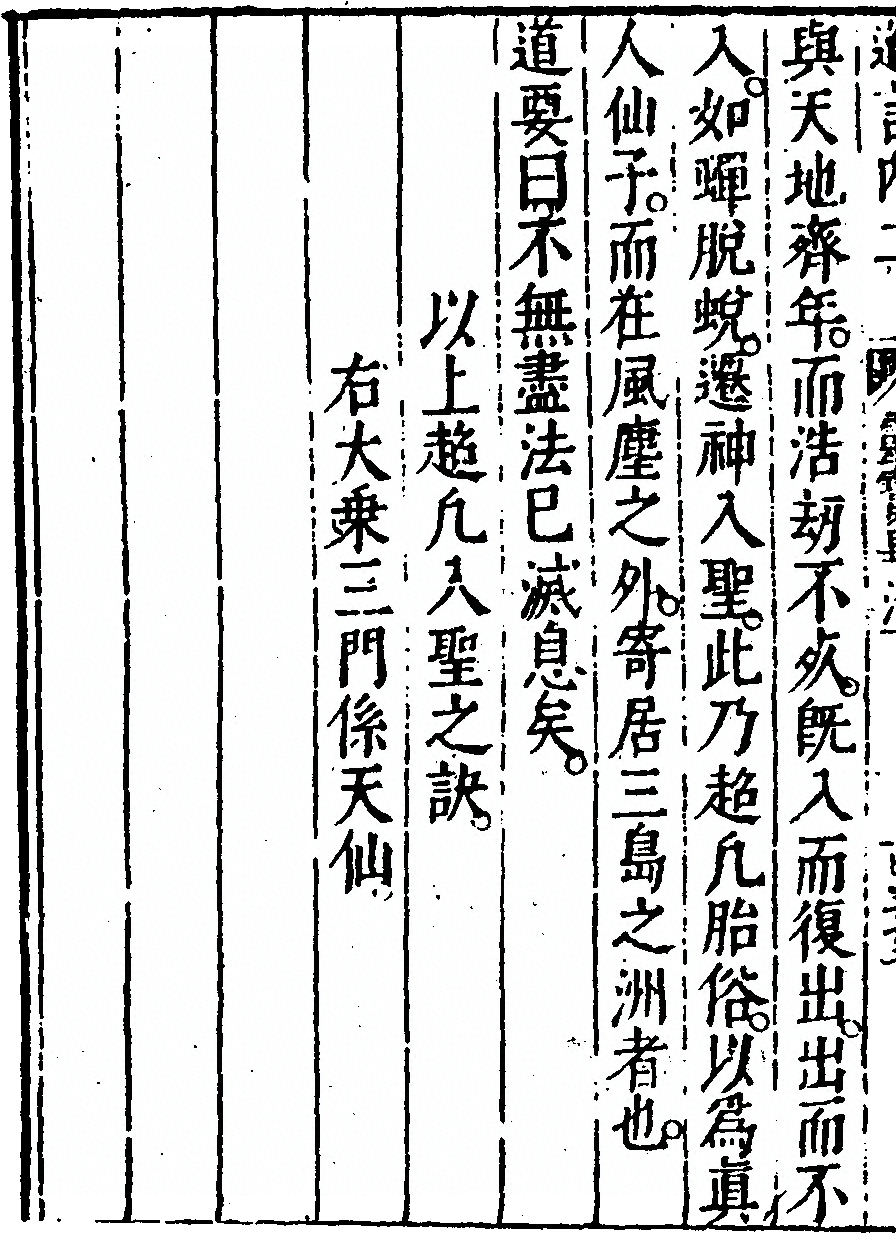 與天地齊年。而浩刼不夾。既入而復出。出而不
入。如蟬脫蛻。遷神入聖。此乃超凡胎俗。以爲眞
人仙子。而在風塵之外。寄居三島之洲者也。
道要曰不無盡法已滅息矣。
以上超凡入聖之訣。
右大乗三門係天仙